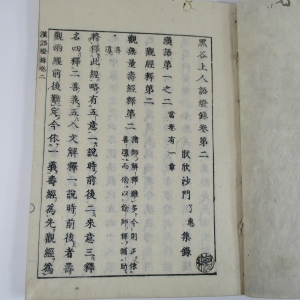 黒谷上人語燈録卷第二
厭欣沙門了惠集錄
漢語第一之二 當卷有一章
觀經釋第二
觀無量壽經釋第二
將釋此經略有五意一說時前後二來意三釋
名四釋二善義五入文解釋一說時前後者壽
觀兩經前後難定今依一義壽經為先觀經為
漢語燈錄卷二